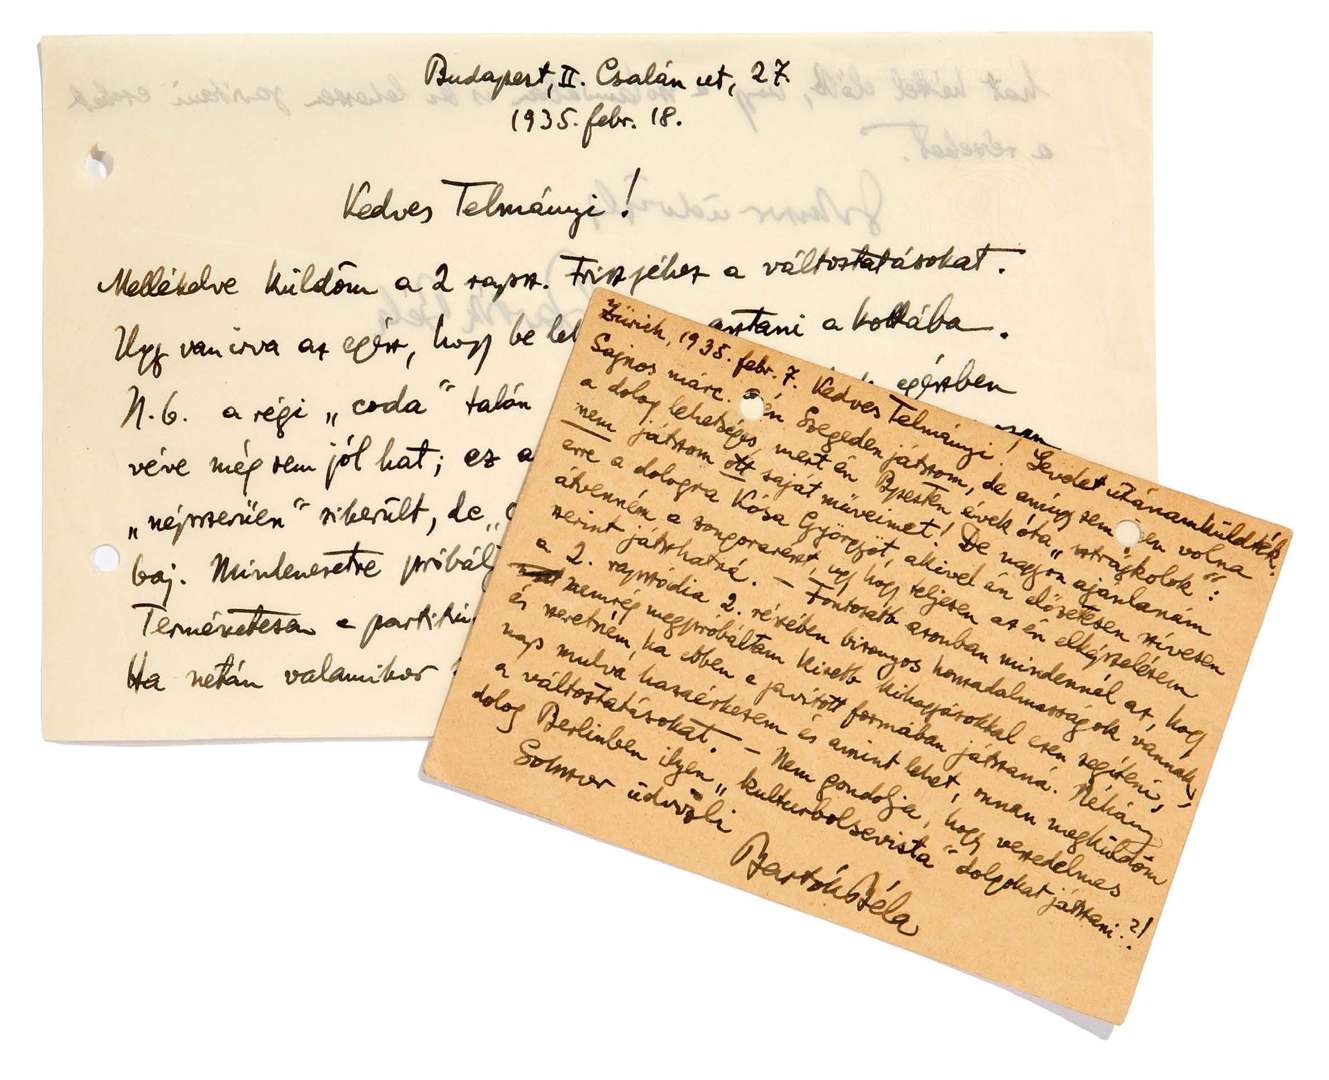 Budapest, II. Csalán ut, 27.
1935. febr. 18.
Kedves Telmányi!
Mellékelve küldöm a 2 rapsz. Frissjéhez a változtatásokat.
Ugy van irva az egész, hogy be leh
asztani a kottába.
N.b. a régi „coda" talán
egészben
véve még sem jól hat; ez a
„népszerűen" sikerült, de
baj. Mindenesetre próbálj
Természetesen a partitu
Ha netán valamikor
Zürich, 1935. febr. 7. Kedves Telmányi! Levelet utánamküldték.
Sajnos márc. én Szegeden játszom, de amúgy sem volna
a dolog lehetséges, mert én Bpesten évek óta „sztrájkolok":
nem játszom ott saját műveimet! De nagyon ajánlanám
erre a dologra Kósa Györgyöt, akivel én előzetesen szivesen
átvenném a zongorarészt, ugy hogy teljesen az én elképzelésem
szerint játszhatná. – Fontosabb azonban mindennél az, hogy
a 2. rapszódia 2. részében bizonyos homadalmasságok vannak,
nemrég megpróbáltam kisebb kihagyásokkal ezen segíteni,
és szeretném, ha ebben a javított formában játszaná. Néhány
nap mulva hazaérkezem és amint lehet, onnan megküldöm
a változtatásokat. – Nem gondolja, hogy veszedelmes
dolog Berlinben ilyen „kulturbolsevista" dolgokat játszani?!
Sokszor üdvözli
Bartók Béla